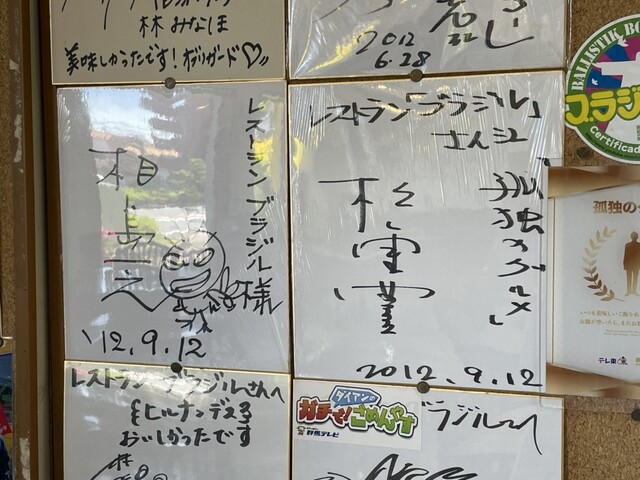 林 みなほ
美味しかったです!オブリガード♡
2012
6.28
レストランブラジル様
相島一之
'12.9.12
レストラン「ブラジル」
さん江
『孤独のグルメ』
松重豊
2012.9.12
BALLISTIK BO
ブラジ
Certificad
孤独の
テレ東
レストランブラジルさんへ
ヒルナンデス
おいしかったです
ダイアンの
ガチで!ごめんやす
群馬テレビ
ブラジルさんへ